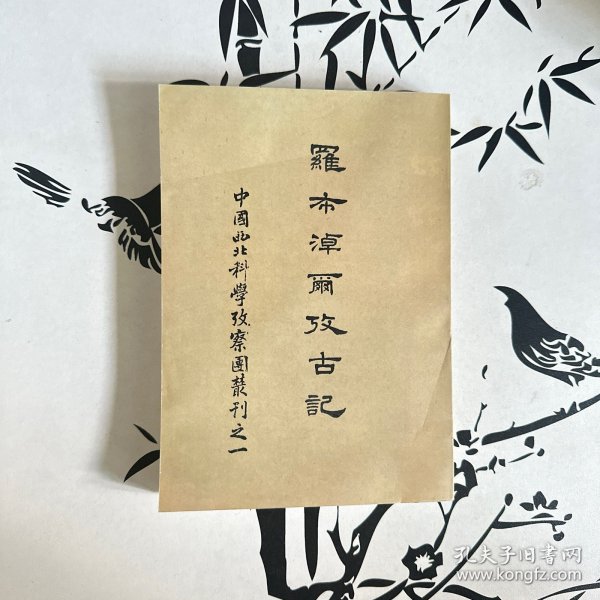 羅布淖爾攷古記
中國西北科學攷察團叢刊之一
孔夫子旧书网
www.kongfz.com